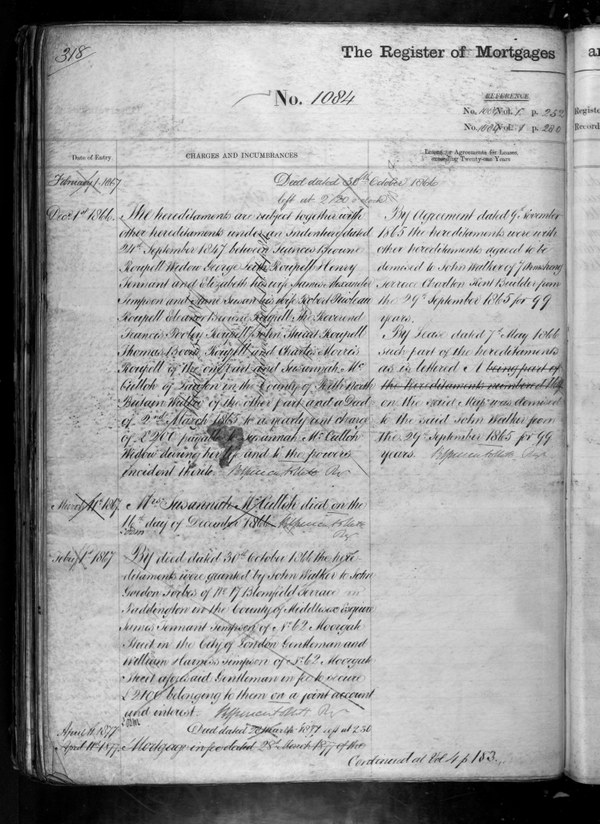 318
The Register of Mortgages
an
No. 1084
REFERENCE
No. Vol. 1 p. 252
No. 1084 Vol. 1 p. 280
Registe
Record
Date of Entry
CHARGES AND INCUMBRANCES
Leases or Agreements for Leases
exceeding Twenty-one Years
February 1 1867
Deed dated 30th October 1866
left at 2
Decr 1st 1866
The hereditaments are subject together with
other hereditaments under an Indenture dated
24th September 1847 between Frances Browne
Roupell Widow George Leith Roupell Henry
Tennant and Elizabeth his wife James Alexander
Simpson and Susan his wife Robert
Roupell Eleanor Browne Roupell The Reverend
Francis Pooley Roupell John Stuart Roupell
Thomas Boone Roupell and Charles Morris
Roupell of the one part and Susannah Mc
Culloh of in the County of Perth North
Britain Widow of the other part and a Deed
of 2nd March 1865 to a yearly rent charge
of £200 payable to Susannah McCulloh
Widow during her life and to the powers
incident thereto
By Agreement dated 9 November
1865 the hereditaments were with
other hereditaments agreed to be
demised to John Walker of 7 Armstrong
Terrace Charlton Kent Builder from
the 29th September 1865 for 99
years.
By Lease dated 7th May 1866
such part of the hereditaments
as is lettered A being part of
the hereditaments numbered
on the said Map was demised
to the said John Walker from
the 29th September 1865 for 99
years.
March 11th 1867
Mrs Susannah McCulloh died on the
16th day of December 1866
Feby 1st 1867
By deed dated 30th October 1866 the here
ditaments were granted by John Walker to John
Gordon Forbes of No 17 Blomfield Terrace in
Paddington in the County of Middlesex Esquire
James Tennant Simpson of No 62 Moorgate
Street in the City of London Gentleman and
William Harness Simpson of No 62 Moorgate
Street aforesaid Gentleman in fee to secure
£2100 belonging to them on a joint account
and interest.
April 11 1877
Deed dated 28 March 1877 left at 2.30
April 11th 1877
Mortgage in fee dated 28th March 1877 of the
Continued at Vol 4 p 183.